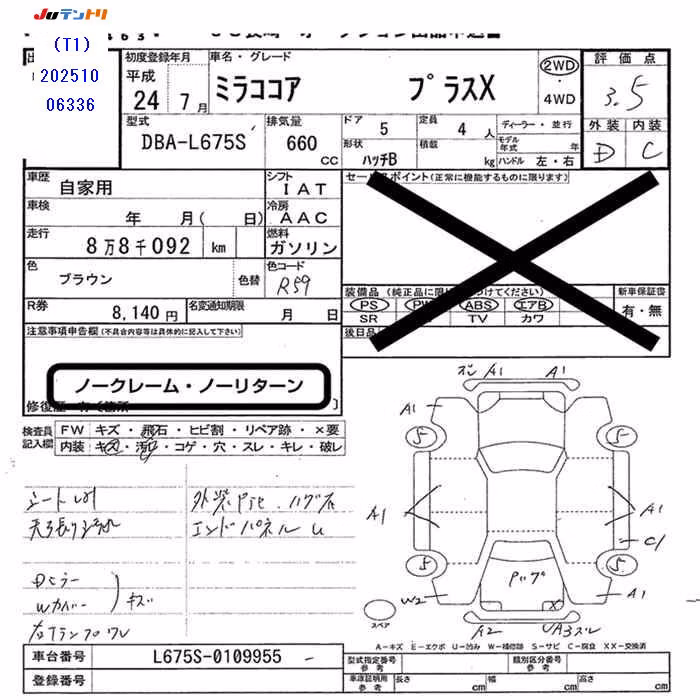 JUテントリ
(T1)
202510
06336
初度登録年月
平成
24 7月
車名・グレード
ミラココア プラスX
2WD
・
4WD
評価点
3.5
外装 内装
D C
型式
DBA-L675S
排気量
660
CC
ドア
5
定員
4 人
形状
ハッチB
積載
kg
ディーラー・並行
モデル年式
年
ハンドル 左・右
車歴
自家用
シフト
IAT
車検
年 月( 日)
冷房
AAC
走行
8万8千092 km
燃料
ガソリン
色
ブラウン
色替
色コード
R59
R券
8,140円
名変通知期限
月 日
セールスポイント(正常に機能するものに限ります)
装備品
PS PW ABS エアB
SR TV カワ
新車保証書
有・無
後日品
注意事項申告欄(不具合内容等は具体的に記入して下さい)
ノークレーム・ノーリターン
検査員
記入欄
FW キズ・飛石・ヒビ割・リペア跡・×要
内装 キズ・汚れ・コゲ・穴・スレ・キレ・破レ
外装
エンドパネル U
Dミラー
Wカバー
キズ
A1 A1
A1
5 5
A1 A1
C1
5 5
W2 A1
A2
スペア
A-キズ E-エクボ U-凹み W-補修跡 S-サビ C-腐食 XX-交換済
車台番号 L675S-0109955
登録番号
型式指定番号
参考
類別区分番号
参考
車庫証明用
参考
長さ cm 幅 cm 高さ cm